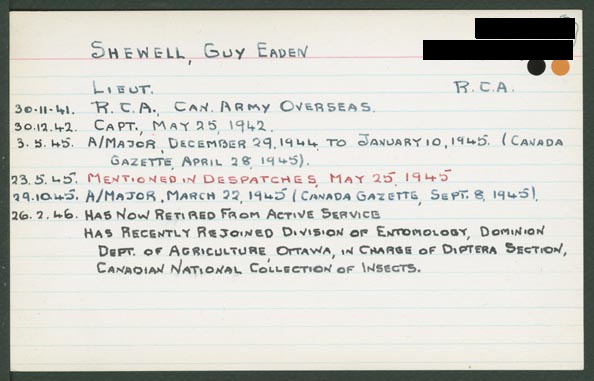 SHEWELL, GUY EADEN
LIEUT. R.C.A.
30.11.41. R.C.A., CAN. ARMY OVERSEAS.
30.12.42. CAPT., MAY 25, 1942.
3.5.45. A/MAJOR, DECEMBER 29, 1944 TO JANUARY 10, 1945. (CANADA
GAZETTE, APRIL 28, 1945).
23.5.45. MENTIONED IN DESPATCHES, MAY 25, 1945
29.10.45. A/MAJOR, MARCH 22, 1945 (CANADA GAZETTE, SEPT. 8, 1945).
26.2.46. HAS NOW RETIRED FROM ACTIVE SERVICE
HAS RECENTLY REJOINED DIVISION OF ENTOMOLOGY, DOMINION
DEPT. OF AGRICULTURE, OTTAWA, IN CHARGE OF DIPTERA SECTION,
CANADIAN NATIONAL COLLECTION OF INSECTS.